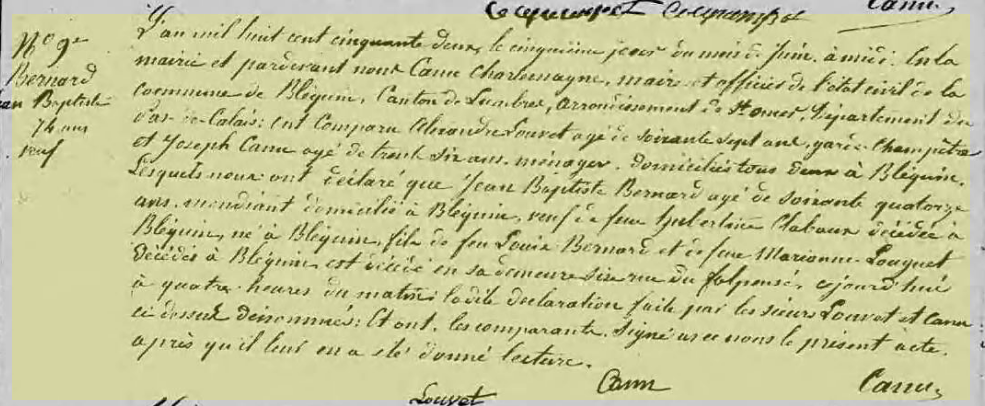 Canu
No 9e
Bernard
Jean Baptiste
74 ans
veuf
L'an mil huit cent cinquante deux, le cinquième jour du mois de Juin, à midi. En la
mairie et pardevant nous Canu Charlemagne, maire et officier de l'état civil de la
commune de Bléquin, Canton de Lumbres, arrondissement de St omer, Département du
Pas-de-Calais: Ont Comparu Alexandre Louvet agé de soixante sept ans, garde-champêtre
et Joseph Canu agé de trente six ans, ménager, domiciliés tous deux à Bléquin.
Lesquels nous ont déclaré que Jean Baptiste Bernard agé de soixante quatorze
ans, mendiant domicilié à Bléquin, veuf de feue Hubertine Clabaux décédée à
Bléquin, né à Bléquin, fils de feu Louis Bernard et de feue Marianne Louguet
décédés à Bléquin est décédé en sa demeure sise rue du , cejourd'hui
à quatre heures du matin: la dite déclaration faite par les sieurs Louvet et Canu
ci dessus dénommés: Et ont, les comparants, signé avec nous le présent acte,
après qu'il leur en a été donné lecture.
Louvet Canu Canu